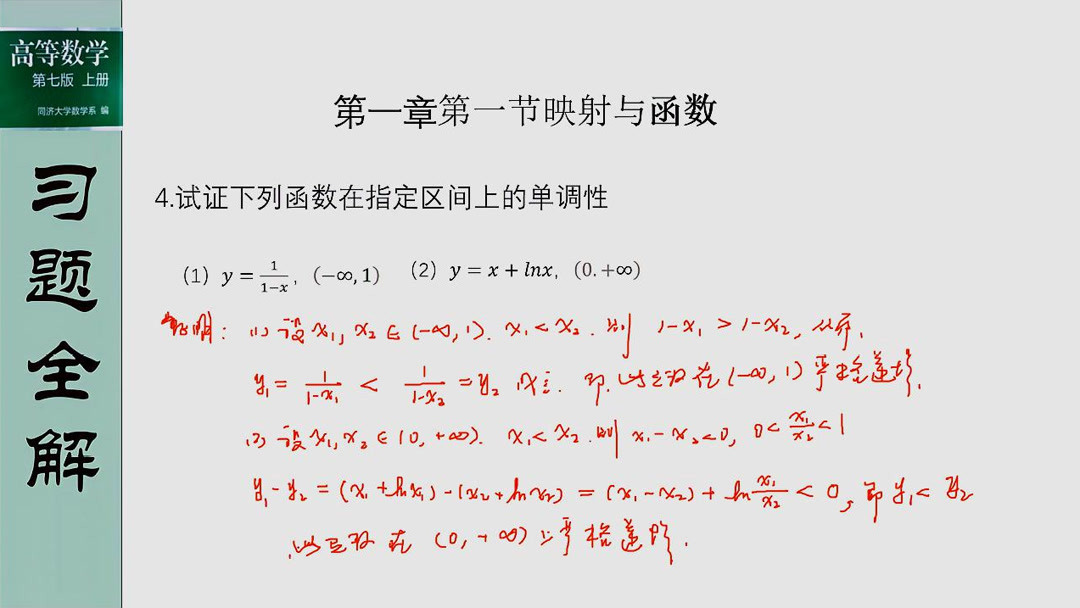 高等数学
第七版 上册
同济大学数学系 编
习题全解
第一章第一节映射与函数
4.试证下列函数在指定区间上的单调性
(1) y = 1/(1−x), (−∞, 1) (2) y = x + lnx, (0.+∞)
证明: (1) 设 x₁, x₂ ∈ (−∞, 1). x₁ < x₂. 则 1−x₁ > 1−x₂, 从而,
y₁ = 1/(1−x₁) < 1/(1−x₂) = y₂ 成立. 即. 此函数在 (−∞, 1) 严格递增.
(2) 设 x₁, x₂ ∈ (0, +∞). x₁ < x₂. 则 x₁ − x₂ < 0, 0 < x₁/x₂ < 1
y₁ − y₂ = (x₁ + ln x₁) − (x₂ + ln x₂) = (x₁ − x₂) + ln x₁/x₂ < 0, 即 y₁ < y₂
此函数在 (0, +∞) 上严格递增.